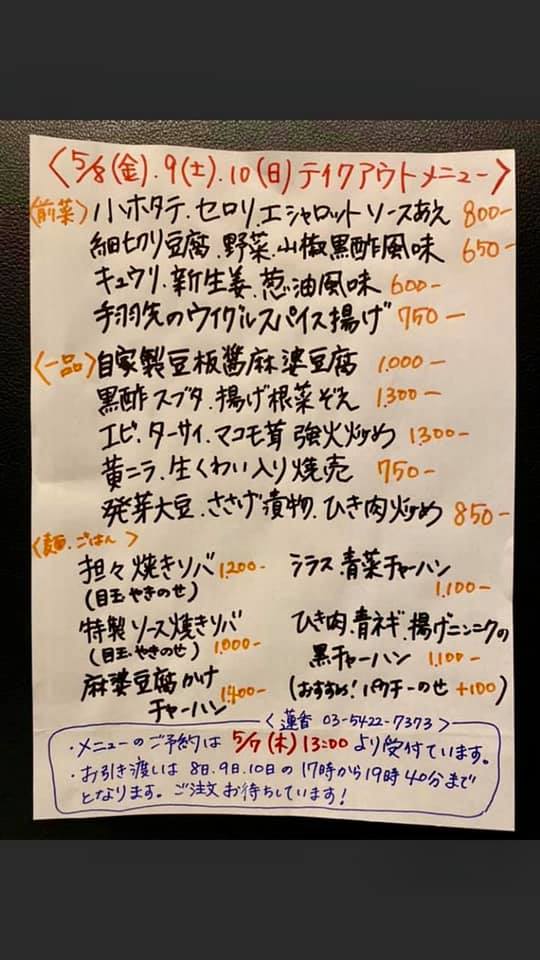 〈5/8(金).9(土).10(日)テイクアウトメニュー〉
〈前菜〉小ホタテ.セロリ.エシャロットソースあえ 800-
細切り豆腐.野菜.山椒黒酢風味 650-
キュウリ.新生姜.葱油風味 600-
手羽先のウイグルスパイス揚げ 750-
〈一品〉自家製豆板醤麻婆豆腐 1.000-
黒酢スブタ.揚げ根菜ぞえ 1.300-
エビ.ターサイ.マコモ茸 強火炒め 1.300-
黄ニラ.生くわい入り焼売 750-
発芽大豆.ささげ漬物.ひき肉炒め 850-
〈麺.ごはん〉
担々焼きソバ 1.200-
(目玉やきのせ)
特製ソース焼きソバ
(目玉やきのせ) 1.000-
麻婆豆腐かけ
チャーハン 1.400-
シラス.青菜チャーハン
1.100-
ひき肉.青ネギ.揚げニンニクの
黒チャーハン 1.100-
(おすすめ!パクチーのせ +100)
〈蓮香 03-5422-7373〉
・メニューのご予約は 5/7(木)13:00より受付ています。
・お引き渡しは 8日.9日.10日の17時から19時40分まで
となります。ご注文お待ちしています!